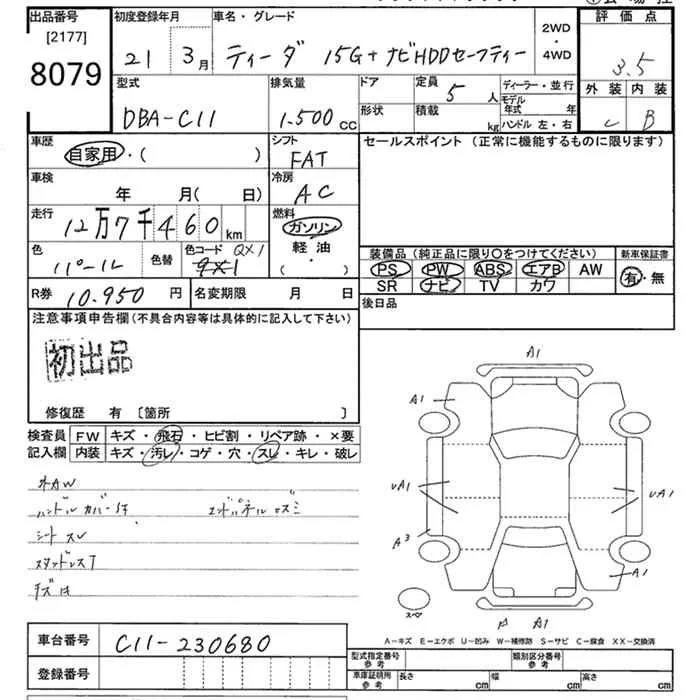 出品番号
[2177]
8079
初度登録年月
21 3月
車名・グレード
ティーダ 15G+ナビHDDセーフティー
2WD
・
4WD
評価点
3.5
外装 内装
C B
型式
DBA-C11
排気量
1.500cc
ドア
形状
定員
5人
積載
kg
ディーラー・並行
モデル年式 年
ハンドル 左・右
車歴
自家用・( )
シフト
FAT
車検
年 月(日)
冷房
AC
走行
12万7千460km
燃料
ガソリン
軽油
・( )
色
パール
色替
色コード QX1
9X1
R券 10.950円
名変期限 月 日
セールスポイント (正常に機能するものに限ります)
装備品(純正品に限り○をつけてください)
PS PW ABS エアB AW
SR ナビ TV カワ
新車保証書
有・無
後日品
注意事項申告欄(不具合内容等は具体的に記入して下さい)
初出品
修復歴 有 [箇所 ]
検査員記入欄
FW キズ・飛石・ヒビ割・リペア跡・×要
内装 キズ・汚レ・コゲ・穴・スレ・キレ・破レ
外AW
ハンドルカバー
シートスレ
A1
A1
UA1
UA1
A3
A1
スペ
P A1
A-キズ E-エクボ U-凹み W-補修跡 S-サビ C-腐食 XX-交換済
車台番号 C11-230680
登録番号
型式指定番号
参考
類別区分番号
参考
車庫証明用
参考
長さ cm 幅 cm 高さ cm